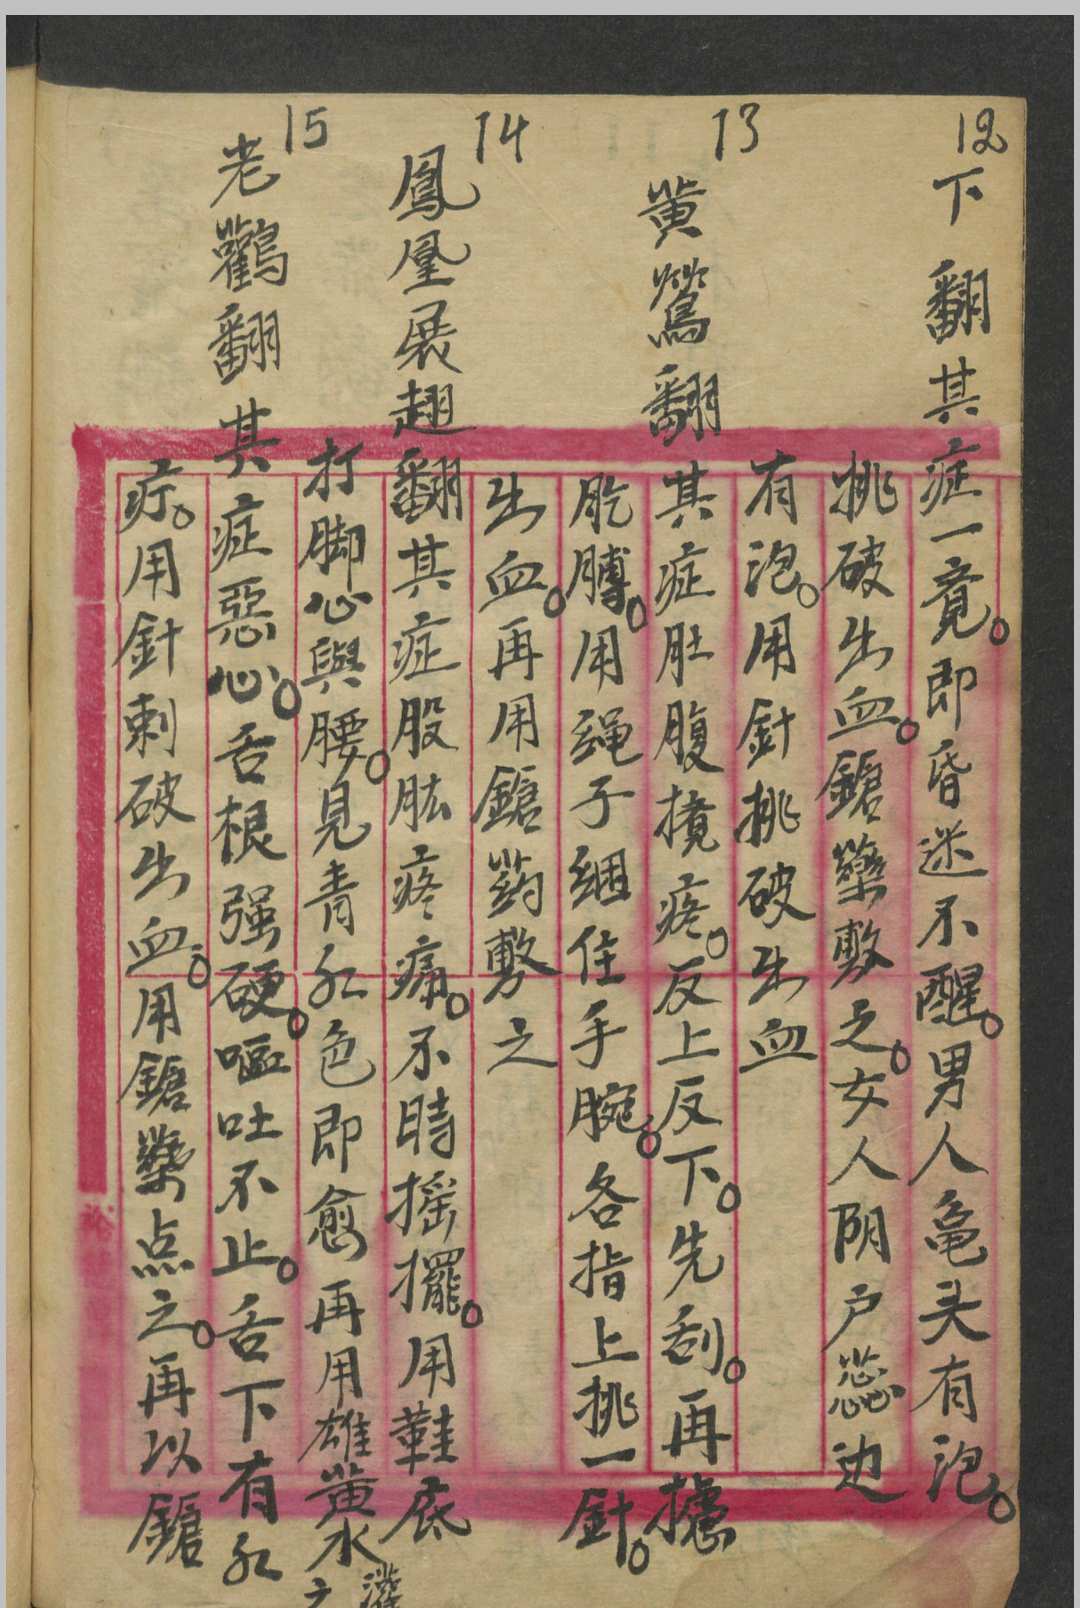 12
下翻其症一竟。即昏迷不醒。男人黾头有泡。
挑破出血。鎗藥敷之。女人阴户蕊边
有泡。用針挑破出血
13
黄鶯翻其症肚腹攪疼。反上反下。先刮。再摅
肐膊。用绳子綑住手腕。各指上挑一針。
出血。再用鎗葯敷之
14
鳳凰展翅翻其症股肱疼痛。不時摇擺。用鞋底
打脚心與腰。見青红色即愈再用雄黄水灌之
15
老鸛翻其症惡心。舌根强硬。嘔吐不止。舌下有红
疔。用針刺破出血。用鎗藥点之。再以鎗